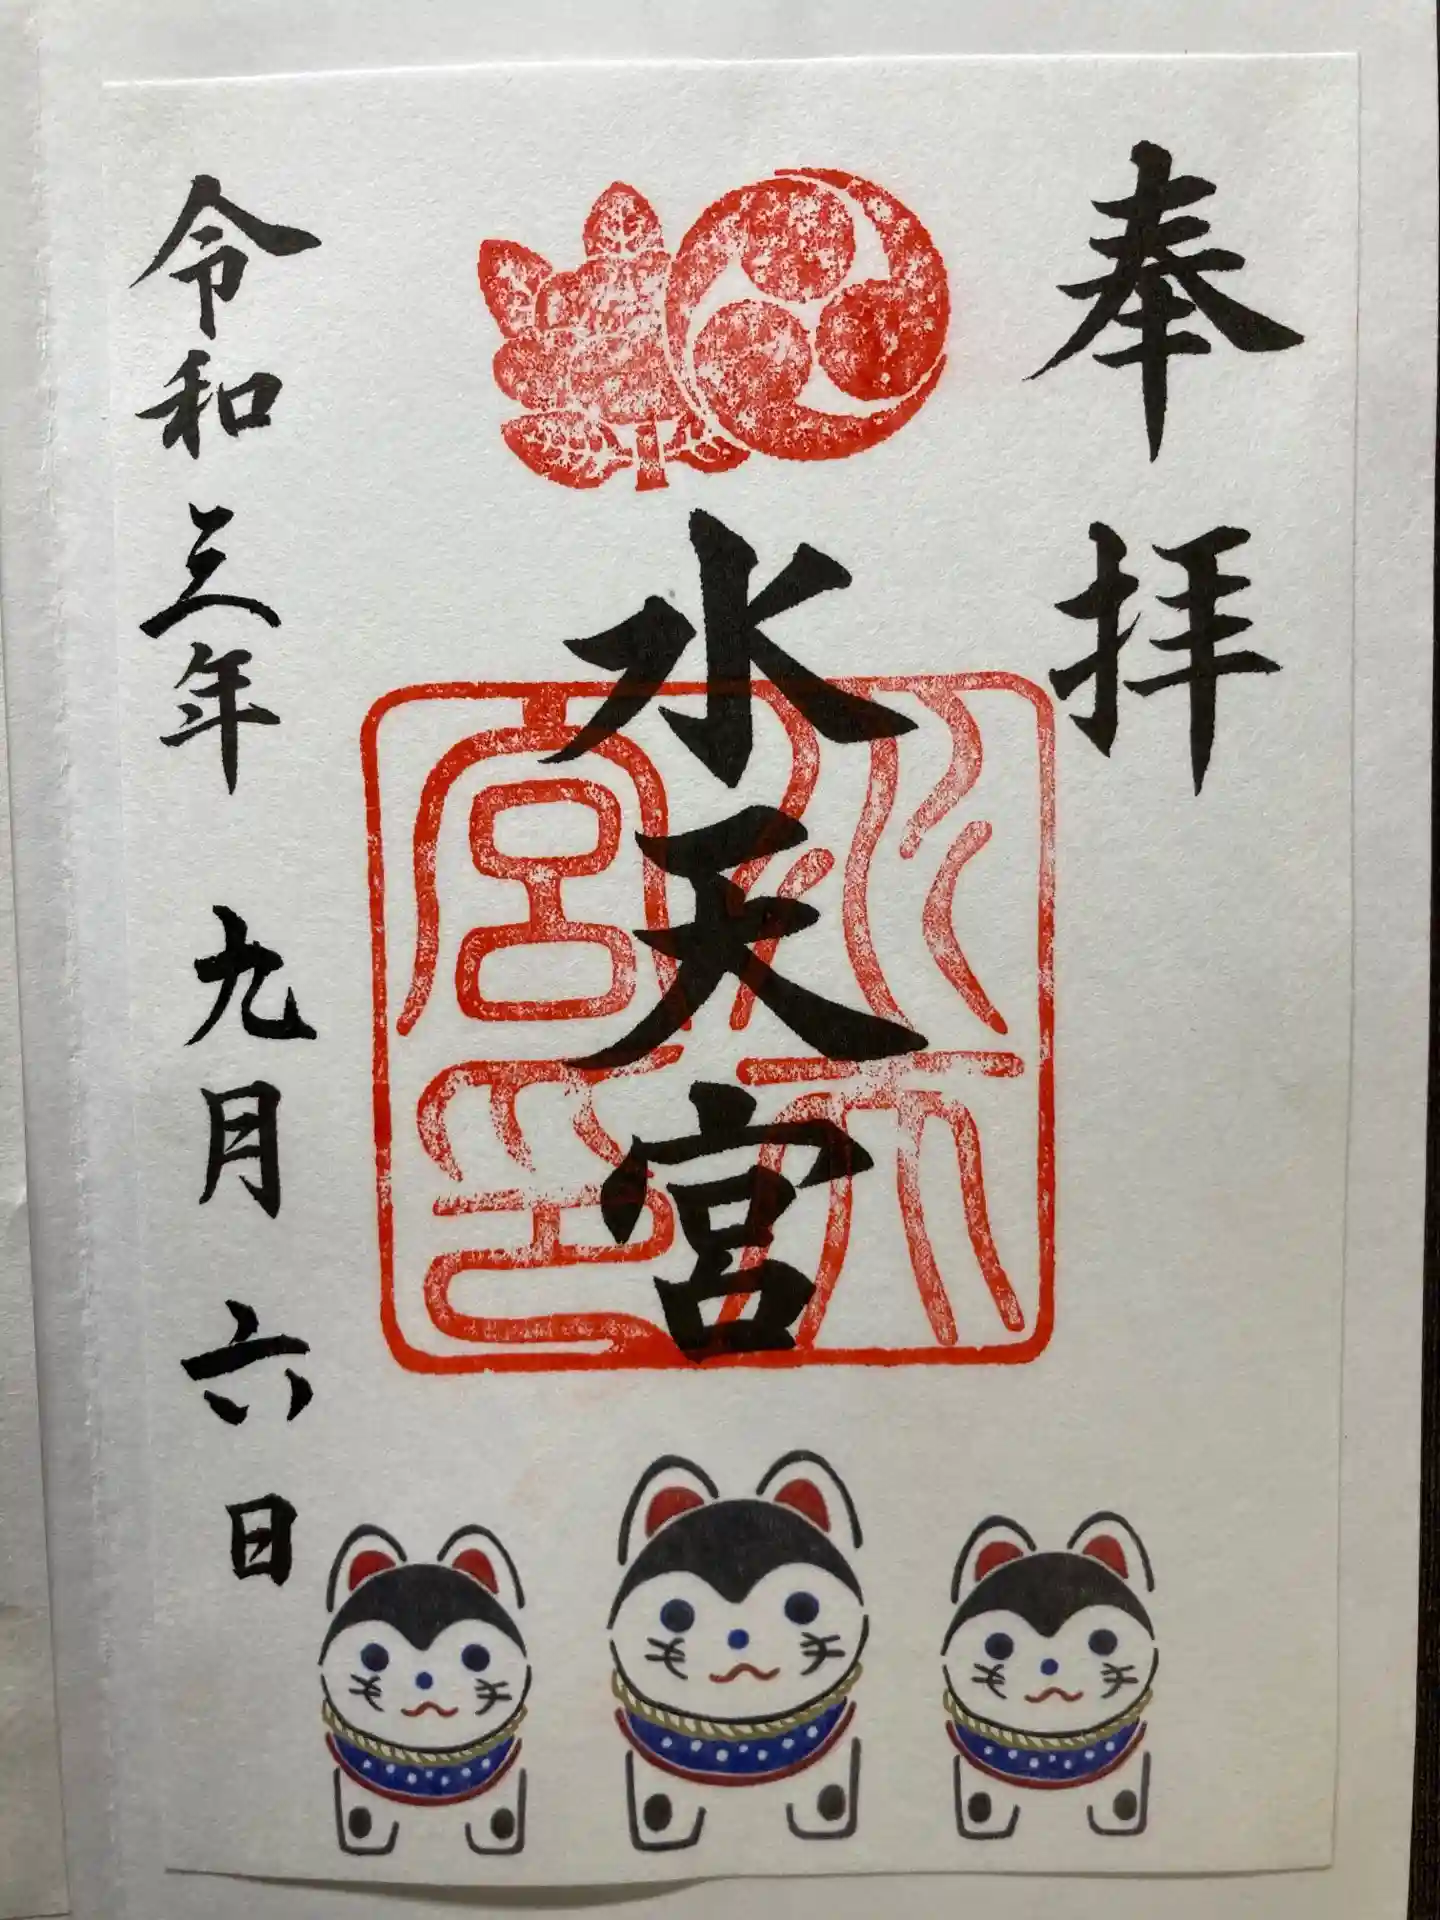 奉拝
水天宮
水天宮印
令和三年 九月 六日